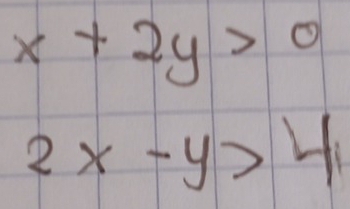 x + 2y > 0
2x - y > 4